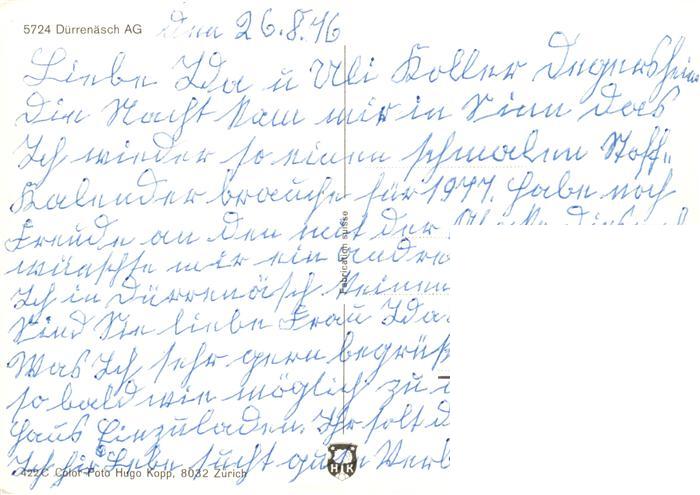 5724 Dürrenäsch AG
Den 26.8.76
Liebe Ida u Uli Koller Degersheim
Die Nacht kam mir in Sinn das
Ich wieder so einen schmalen Stoff„
Kalender brauche für 1977. Habe noch
Freude an den mit der
wünschte mir ein andre
Ich in Dürrenäsch keinen
Sind Sie liebe Frau Ida
Was Ich sehr gern begrüß
so bald wie möglich zu
Haus Einzuladen. Ihr solt d
Ich für Lebe sucht gute Verb
422C Color Foto Hugo Kopp, 8032 Zürich
HK
Fabrication suisse